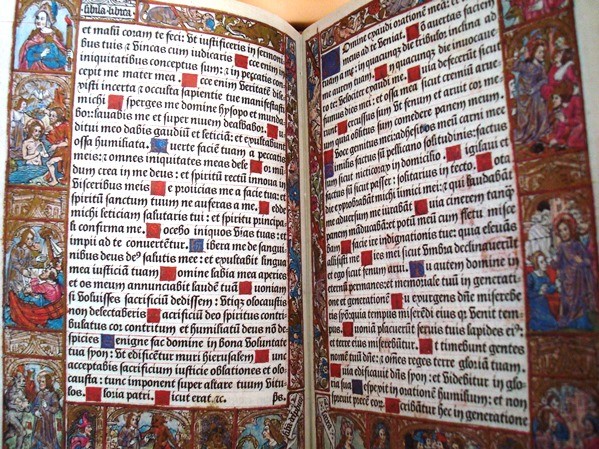 sibila libica
et malū coram te feci: vt iustificeris in sermoni
bus tuis z vincas cum iudicaris cce enim in
iniquitatibus conceptus sum: z in peccatis con
cepit me mater mea. cce enim veritatē dile
xisti incerta z occulta sapientie tue manifestasti
michi sperges me domine hysopo et munda
bor: lauabis me et super niuem dealbabor.
ditui meo dabis gaudiū et leticiā: et exultabunt
ossa humiliata. uerte faciē tuam a peccatis
meis: z omnes iniquitates meas dele or mū
dum crea in me deus: et spiritū rectū innoua in
visceribus meis e proiicias me a facie tua: et
spiritū sanctum tuum ne auferas a me. edde
michi leticiam salutaris tui: et spiritu principa
li confirma me. ocebo iniquos vias tuas: et
impii ad te conuertētur. ibera me de sangui
nibus deus deꝰ salutis mee: et exultabit lingua
mea iusticiā tuam omine labia mea aperies
et os meum annunciabit laudē tuā uoniam
si voluisses sacrificiū dedissem: vtiqꝫ olocaustis
non delectaberis acrificiū deo spiritus contri
bulatus cor contritum et humiliatū deus nō de
spicies enigne fac domine in bona voluntate
tua syon: vt edificētur muri hierusalem unc
acceptabis sacrificium iusticie oblationes et olo
causta: tunc imponent super altare tuum vitu
los. loria patri. icut erat.zc. ps.
omine exaudi orationē meā: et clamor
meus ad te veniat. ō auertas faciem
tuam a me: in quacunqꝫ die tribulor inclina ad
me aurem tuam. n quacunqꝫ die inuocaue
ro te: velociter exaudi me. uia defecerūt sicut
fumus dies mei: et ossa mea sicut cremiū arue
runt ercussus sum vt fenum et aruit cor me
um quia oblitus sum comedere panem meum.
voce gemitus mei: adhesit os meū carni mee
imilis factus sū pellicano solitudinis: factus
sum sicut nicticorax in domicilio. igilaui et
factus sū sicut passer: solitarius in tecto. ota
die exprobabāt michi inimici mei: z qui laudabāt
me aduersum me iurabāt uia cinerem tanqꝫ
panem māducabā: et potū meū cum fletu misce
bam facie ire indignationis tue: quia eleuās
allisisti me ies mei sicut vmbra declinauerūt
et ego sicut fenum arui. u autem domine in
eternū permanes: et memoriale tuū in generatione
et generationē u exurgens dn̄e misereбе
ris syō: quia tempus miserēdi eius qꝫ venit tem
pus. uoniā placuerūt seruis tuis lapides eiꝰ:
et terre eius miserebūtur. t timebunt gentes
nomē tuū dn̄e: z om̄es reges terre gloriā tuam.
uia edificauit dn̄s syon: et videbitur in glo
ria sua espexit in orationē humilium: et non
spreuit precē eoꝝ cribātur hec in generatione